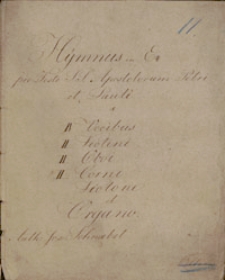 11
Hymnus in Es
pro Festo S.S. Apostolorum Petri
et Pauli
a
II Vocibus
II Violini
II Oboi
II Corni
Violone
et
Organo.
Schnabel